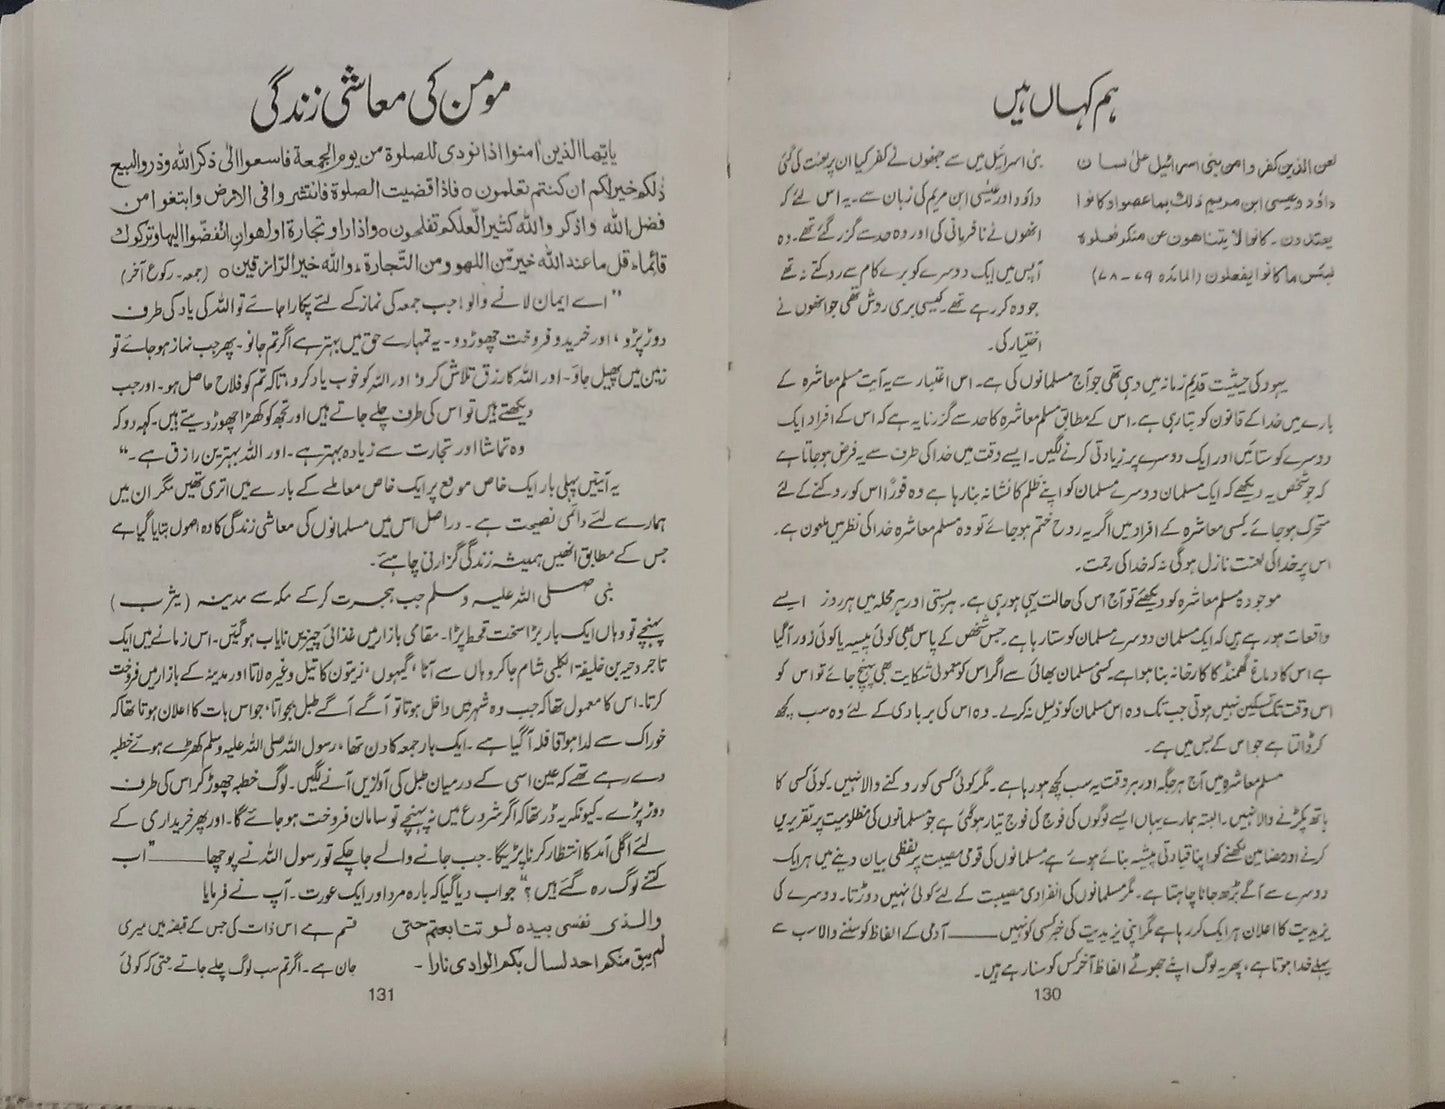 ہم کہاں ہیں
لعن الذین کفروا من بنی اسرائیل علیٰ لسان
داؤد وعیسی ابن مریم ذٰلک بما عصوا وکانوا
یعتدون۔ کانوا لا یتناھون عن منکر فعلوہ
لبئس ما کانوا یفعلون (المائدہ ۷۹-۷۸)
بنی اسرائیل میں سے جنھوں نے کفر کیا ان پر لعنت کی گئی
داؤد اور عیسیٰ ابن مریم کی زبان سے۔ یہ اس لئے کہ
انھوں نے نافرمانی کی اور وہ حد سے گزر گئے تھے۔ وہ
آپس میں ایک دوسرے کو برے کام سے روکتے نہ تھے
جو وہ کر رہے تھے۔ کیسی بری روش تھی جو انھوں نے
اختیار کی۔
یہود کی حیثیت قدیم زمانہ میں وہی تھی جو آج مسلمانوں کی ہے۔ اس اعتبار سے یہ آیت مسلم معاشرہ کے
بارے میں خدا کے قانون کو بتا رہی ہے۔ اس کے مطابق مسلم معاشرہ کا حد سے گزرنا یہ ہے کہ اس کے افراد ایک
دوسرے کو ستائیں اور ایک دوسرے پر زیادتی کرنے لگیں۔ ایسے وقت میں خدا کی طرف سے یہ فرض ہو جاتا ہے
کہ جو شخص یہ دیکھے کہ ایک مسلمان دوسرے مسلمان کو اپنے ظلم کا نشانہ بنا رہا ہے وہ فوراً اس کو روکنے کے لئے
متحرک ہو جائے۔ کسی معاشرہ کے افراد میں اگر یہ روح ختم ہو جائے تو وہ مسلم معاشرہ خدا کی نظر میں ملعون ہے۔
اس پر خدا کی لعنت نازل ہوگی نہ کہ خدا کی رحمت۔
موجودہ مسلم معاشرہ کو دیکھئے تو آج اس کی حالت یہی ہو رہی ہے۔ ہر بستی اور ہر محلہ میں ہر روز ایسے
واقعات ہو رہے ہیں کہ ایک مسلمان دوسرے مسلمان کو ستا رہا ہے۔ جس شخص کے پاس بھی کوئی پیسہ یا کوئی زور آگیا
ہے اس کا دماغ گھمنڈ کا کارخانہ بنا ہوا ہے۔ کسی مسلمان بھائی سے اگر اس کو معمولی شکایت بھی پہنچ جائے تو اس کو
اس وقت تک تسکین نہیں ہوتی جب تک وہ اس مسلمان کو ذلیل نہ کرلے۔ وہ اس کی بربادی کے لئے وہ سب کچھ
کر ڈالتا ہے جو اس کے بس میں ہے۔
مسلم معاشرہ میں آج ہر جگہ اور ہر وقت یہ سب کچھ ہو رہا ہے۔ مگر کوئی کسی کو روکنے والا نہیں۔ کوئی کسی کا
ہاتھ پکڑنے والا نہیں۔ البتہ ہمارے یہاں ایسے لوگوں کی فوج کی فوج تیار ہوگئی ہے جو مسلمانوں کی مظلومیت پر تقریریں
کرنے اور مضامین لکھنے کو اپنا قیادتی پیشہ بنائے ہوئے ہے۔ مسلمانوں کی قومی مصیبت پر لفظی بیان دینے میں ہر ایک
دوسرے سے آگے بڑھ جانا چاہتا ہے۔ مگر مسلمانوں کی انفرادی مصیبت کے لئے کوئی نہیں دوڑتا۔ دوسرے کی
یزیدیت کا اعلان ہر ایک کر رہا ہے مگر اپنی یزیدیت کی خبر کسی کو نہیں ــــــــ آدمی کے الفاظ کو سننے والا سب سے
پہلے خدا ہوتا ہے، پھر یہ لوگ اپنے جھوٹے الفاظ آخر کس کو سنا رہے ہیں۔
130
مومن کی معاشی زندگی
یایھا الذین اٰمنوا اذا نودی للصلوٰۃ من یوم الجمعۃ فاسعوا الیٰ ذکر اللہ وذروا البیع
ذٰلکم خیر لکم ان کنتم تعلمون ○ فاذا قضیت الصلوٰۃ فانتشروا فی الارض وابتغوا من
فضل اللہ واذکروا اللہ کثیرا لعلکم تفلحون ○ واذا راوا تجارۃ اولھوا ن انفضوا الیھا وترکوک
قائما، قل ما عند اللہ خیر من اللھو ومن التجارۃ، واللہ خیر الرازقین ○ (جمعہ۔ رکوع آخر)
"اے ایمان لانے والو! جب جمعہ کی نماز کے لئے پکارا جائے تو اللہ کی یاد کی طرف
دوڑ پڑو، اور خرید و فروخت چھوڑ دو۔ یہ تمہارے حق میں بہتر ہے اگر تم جانو۔ پھر جب نماز ہو جائے تو
زمین میں پھیل جاؤ۔ اور اللہ کا رزق تلاش کرو، اور اللہ کو خوب یاد کرو، تاکہ تم کو فلاح حاصل ہو۔ اور جب
دیکھتے ہیں تو اس کی طرف چلے جاتے ہیں اور تجھ کو کھڑا چھوڑ دیتے ہیں۔ کہہ دو کہ
وہ تماشا اور تجارت سے زیادہ بہتر ہے۔ اور اللہ بہترین رازق ہے۔"
یہ آیتیں پہلی بار ایک خاص موقع پر ایک خاص معاملے کے بارے میں اتری تھیں مگر ان میں
ہمارے لئے دائمی نصیحت ہے۔ دراصل اس میں مسلمانوں کی معاشی زندگی کا وہ اصول بتایا گیا ہے
جس کے مطابق انھیں ہمیشہ زندگی گزارنی چاہئے۔
نبی صلی اللہ علیہ وسلم جب ہجرت کر کے مکہ سے مدینہ (یثرب)
پہنچے تو وہاں ایک بار بڑا سخت قحط پڑا۔ مقامی بازار میں غذائی چیزیں نایاب ہوگئیں۔ اس زمانے میں ایک
تاجر دحیہ بن خلیفۃ الکلبی شام جا کر وہاں سے آٹا، گیہوں، زیتون کا تیل وغیرہ لاتا اور مدینہ کے بازار میں فروخت
کرتا۔ اس کا معمول تھا کہ جب وہ شہر میں داخل ہوتا تو آگے آگے طبل بجواتا، جو اس بات کا اعلان ہوتا تھا کہ
خوراک سے لدا ہوا قافلہ آگیا ہے۔ ایک بار جمعہ کا دن تھا، رسول اللہ صلی اللہ علیہ وسلم کھڑے ہوئے خطبہ
دے رہے تھے کہ عین اسی کے درمیان طبل کی آوازیں آنے لگیں۔ لوگ خطبہ چھوڑ کر اس کی طرف
دوڑ پڑے۔ کیونکہ یہ ڈر تھا کہ اگر شروع میں نہ پہنچے تو سامان فروخت ہو جائے گا۔ اور پھر خریداری کے
لئے اگلی آمد کا انتظار کرنا پڑیگا۔ جب جانے والے جا چکے تو رسول اللہ نے پوچھا ــــــــ "اب
کتنے لوگ رہ گئے ہیں؟" جواب دیا گیا کہ بارہ مرد اور ایک عورت۔ آپ نے فرمایا
والذی نفسی بیدہ لو تتابعتم حتی
لم یبق منکم احد لسال بکم الوادی نارا۔
قسم ہے اس ذات کی جس کے قبضہ میں میری
جان ہے۔ اگر تم سب لوگ چلے جاتے۔ حتیٰ کہ کوئی
131